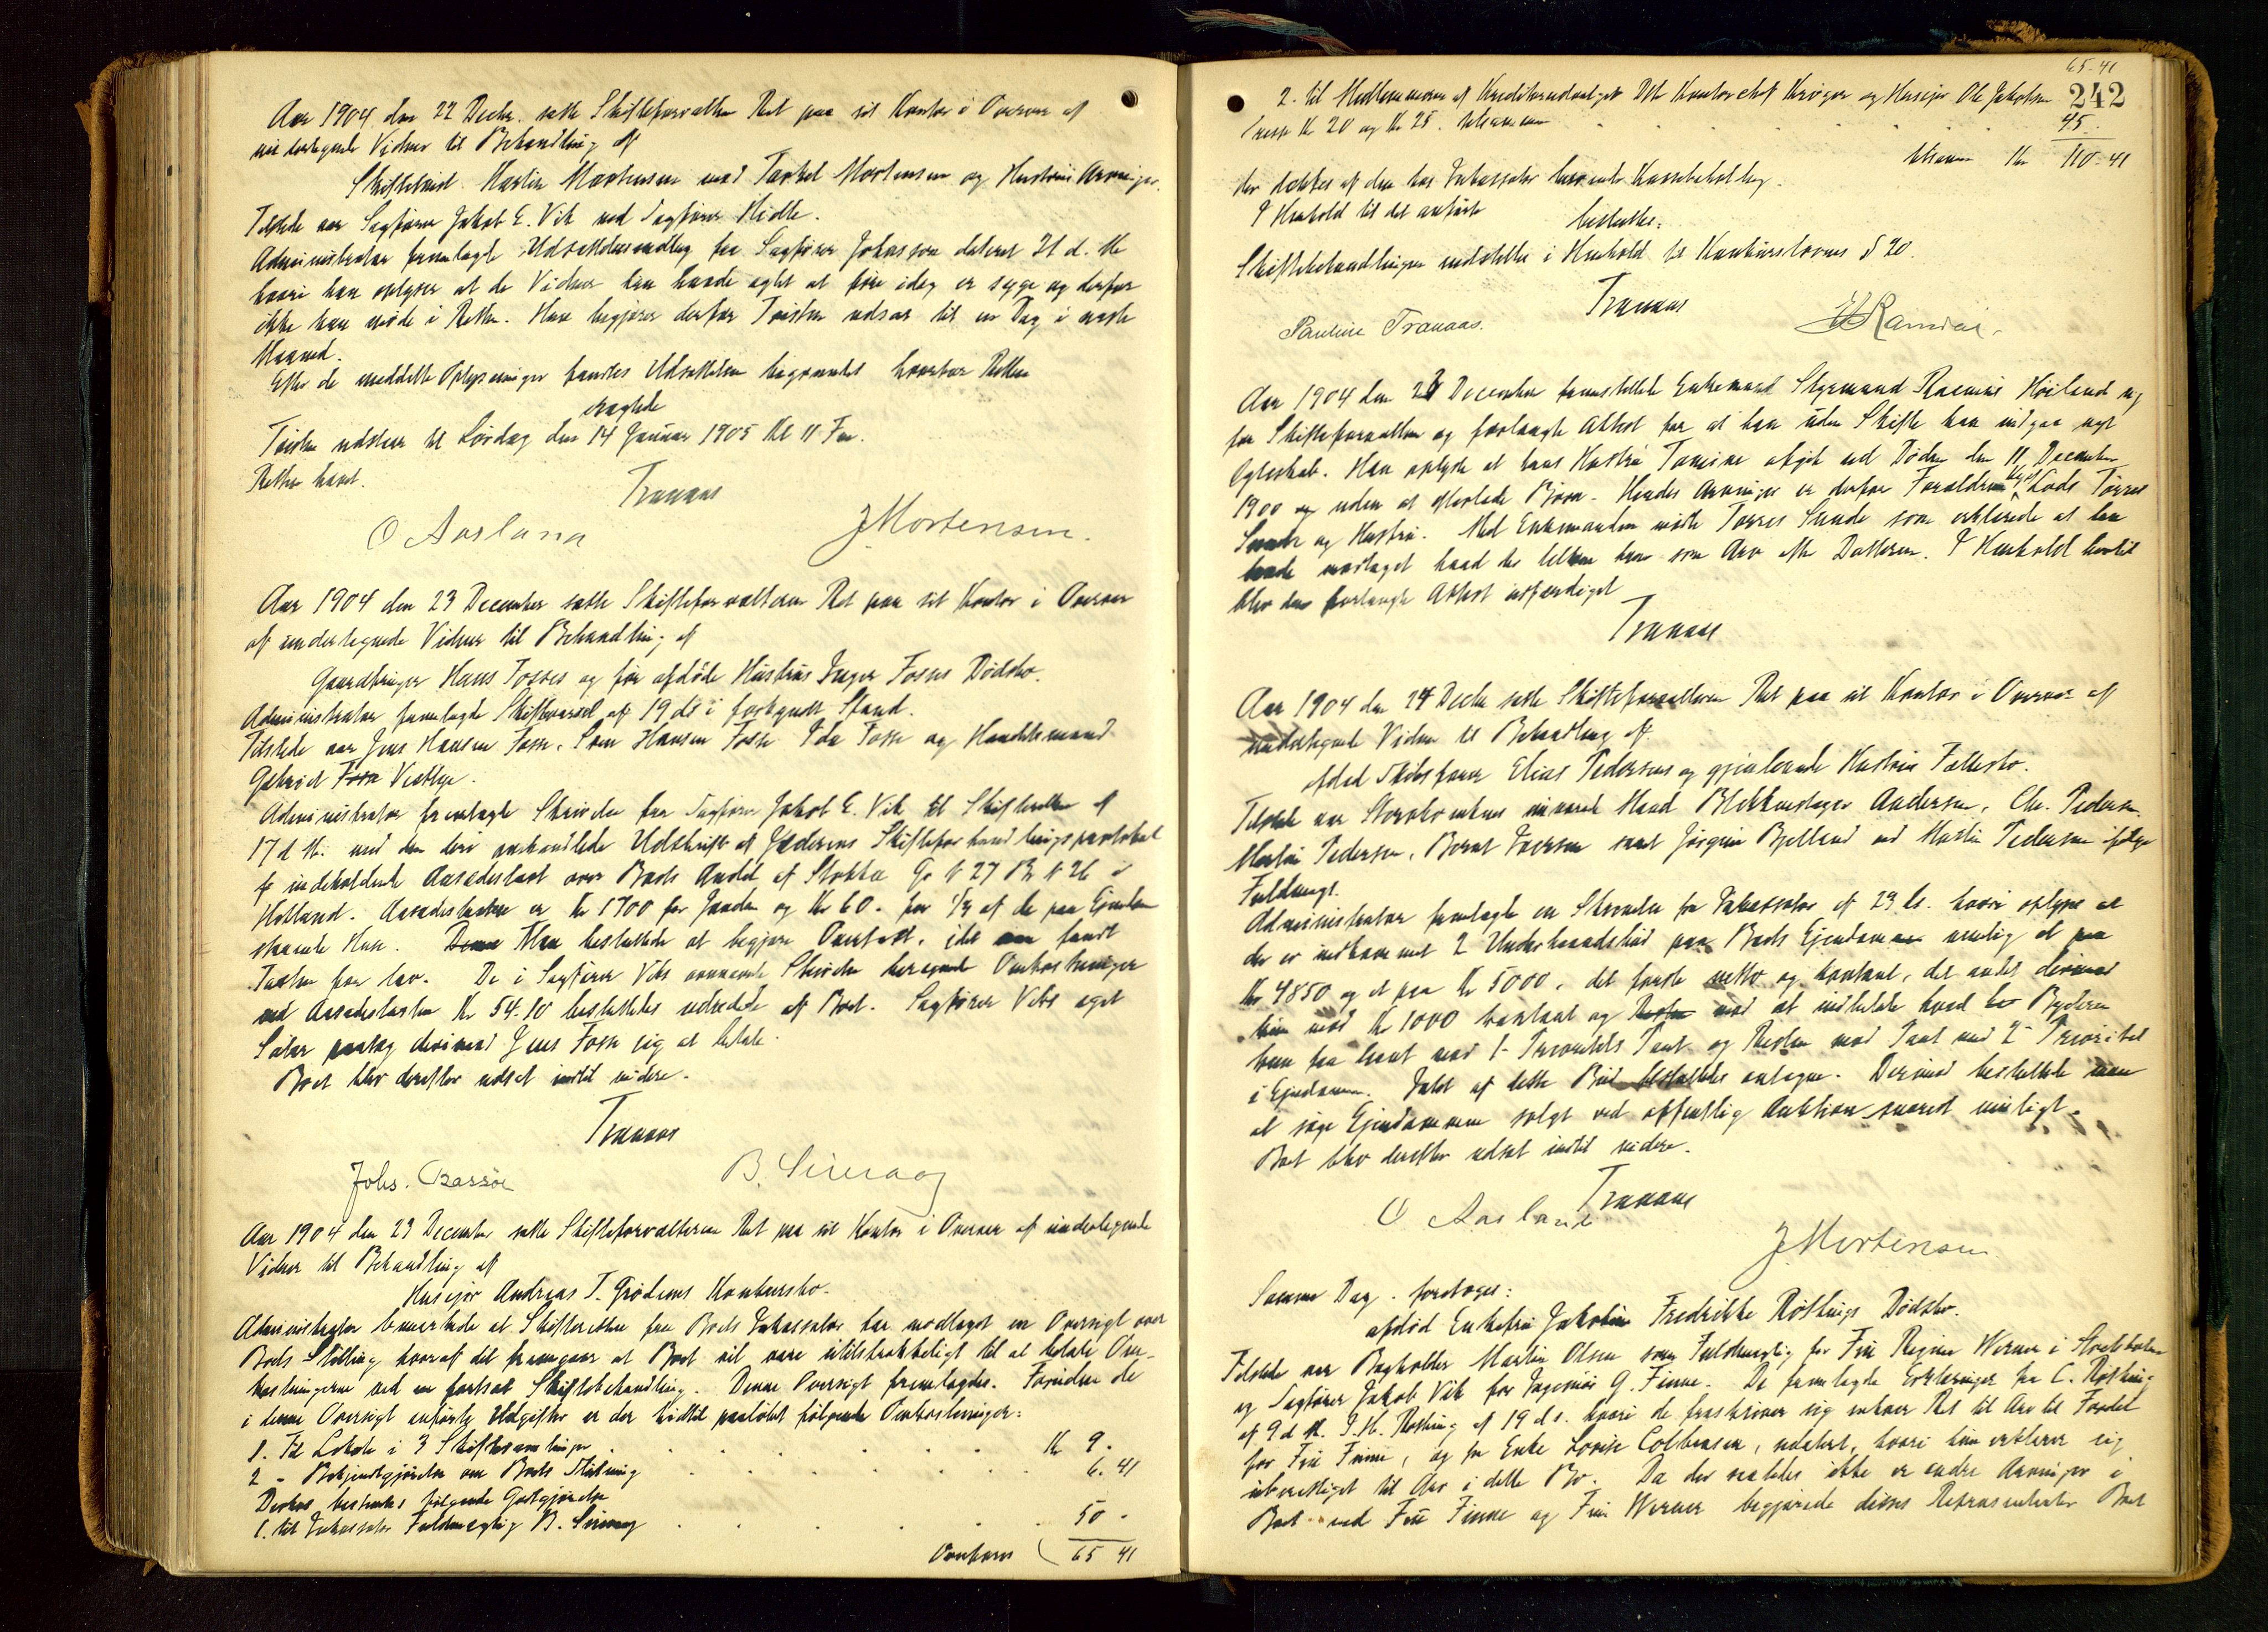 Aar 1904 den 22 Decbr. satte Skifteforvalteren Ret paa sit Kontor i Overvær af
undertegnede Vidner til Behandling af
Skiftetvist Martin Mortensen mod Torkel Mortensen og Hustrus Arvinger.
Tilstede var Sagfører Jakob E. Vik ved Sagfører Hidle.
Administrator fremlagte Udsættelsesandrag fra Sagfører Johnsson dateret 21 d. M.
hvori han oplyser at de Vidner han havde agtet at føre idag er syge og derfor
ikke kan møde i Retten. Han begjærer derfor Tvisten udsat til en Dag i næste
Maaned.
Efter de meddelte Oplysninger fandtes Udsættelsen begrundet hvorfor Retten
eragtede
Tvisten udsættes til Lørdag den 14 Januar 1905 Kl 11 Fm.
Retten hævet.
Tranaas
O Aasland
J Mortensen.
Aar 1904 den 23 December satte Skifteforvalteren Ret paa sit Kontor i Overvær
af undertegnede Vidner til Behandling af
Gaardbruger Hans Fosses og før afdøde Hustrus Inger Fosses Dødsbo.
Administrator fremlagde Skiftevarsel af 19 ds i forkyndt Stand.
Tilstede var Jens Hansen Fosse, Sven Hansen Fosse Ida Fosse og Handelsmand
Gabriel Fosse Vestbye.
Administrator fremlagte Skrivelse fra Sagfører Jakob E. Vik til Skifteretten af
17 d M. med den deri omhandlede Udskrift af Jæderens Skifteforhandlingsprotokol
indeholdende Aasædestaxt over Boets Andel af Stokka G. N 27 B. N 26 i
Hetland. Aasædestaxten er Kr 1700 for Jorden og Kr 60. for 1/4 af de paa Eiendommen
staaende Huse. Denne Man besluttede at begjære Overtaxt, idet man fandt
Taxten for lav. De i Sagfører Viks ovennævnte Skrivelse beregnede Omkostninger
ved Aasædestaxten Kr 54.10 besluttedes udredede af Boet. Sagfører Viks eget
Salær paatog derimod Jens Fosse sig at betale.
Boet blev derefter udsat indtil videre.
Tranaas
Johs. Bassøe
B. Sømag
Aar 1904 den 23 December satte Skifteforvalteren Ret paa sit Kontor i Overvær af undertegnede
Vidner til Behandling af
Huseier Andreas T. Grødems Konkursbo.
Administrator bemærkede at Skifteretten fra Boets Inkassator har modtaget en Oversigt over
Boets Stilling hvoraf det fremgaar at Boet vil være utilstrækkeligt til at betale Om-
kostningerne ved en fortsat Skiftebehandling. Denne Oversigt fremlagdes. Foruden de
i denne Oversigt anførte Udgifter er der hidtil paaløbet følgende Omkostninger:
1. Til Lokale i 3 Skiftesamlinger . . . . . . Kr 9.
2 - Bekjendtgjørelse om Boets Slutning . . . . . . 6.41
Derhos besluttedes følgende Godtgjørelse
1. til Inkassator Fuldmægtig B. Sømag . . . . . 50 -
Overføres 65 41
65-41
242
2. til Medlemmerne af Kreditorudvalget Dhr Kontorchef Krøger og Huseier Ole Jakobsen
(resp Kr 20 og Kr 25. tilsammen . . . . . . 45.
tilsammen Kr 110-41
der dækkes af den hos Inkassator beroende Kassebeholdning.
I Henhold til det anførte
besluttes:
Skiftebehandlingen indstilles i Henhold til Konkurslovens § 20.
Tranaas
Pauline Tranaas.
Aar 1904 den 23 December fremstillede Enkemand Styrmand Rasmus Høiland sig
for Skifteforvalteren og forlangte Attest for at han uden Skifte kan indgaa nyt
Egteskab. Han oplyste at hans Hustru Tomine afgik ved Døden den 11 December
1900 og uden at efterlade Børn. Hendes Arvinger er derfor Forældrene Lods Torres
Sunde og Hustru. Med Enkemanden mødte Torres Sunde som erklærede at han
havde modtaget hvad der tilkom ham som Arv efter Datteren. I Henhold hertil
blev den forlangte Attest udfærdiget
Tranaas
Aar 1904 den 24 Decbr satte Skifteforvalteren Ret paa sit Kontor i Overvær af
undertegnede Vidner til Behandling af
afdød Skibsfører Elias Pedersens og gjenlevende Hustrus Fællesbo.
Tilstede var Stervboenkens nuværende Mand Blikkenslager Andersen, Chr. Pedersen
Martin Pedersen, Bernt Iversen samt Jørgine Bjelland ved Martin Pedersen ifølge
Fuldmagt.
Administrator fremlagte en Skrivelse fra Inkassator af 23 ds. hvori oplyses at
der er indkommet 2 Underhaandsbud paa Boets Eiendomme nemlig et paa
Kr 4850 og et paa Kr 5000, det første netto og kontant, det andet derimod
kun mod Kr 1000 kontant og Resten mod at indbetale hvad Byderen
kan faa laant mod 1- Prioritets Pant og Resten mod Pant med 2- Prioritet
i Eiendommen. Intet af dette Bud besluttedes antagne. Derimod besluttede man
at søge Eiendommene solgt ved offentlig Auktion snarest muligt.
Boet blev derefter udsat indtil videre.
Tranaas
O Aasland
J Mortensen
Samme Dag foretoges:
afdød Enkefru Jakobine Fredrikke Røthings Dødsbo.
Tilstede var Bogholder Martin Olsen som Fuldmægtig for Fru Regine Werner i Stockholm
og Sagfører Jakob Vik for Ingeniør G. Finne. De fremlagte Erklæringer fra C. Røthing
af 9 d M. I. M. Røthing af 19 d s. hvori de fraskriver sig enhver Ret til Arv til Fordel
for Fru Finne, og fra Enke Lovise Colbensen, udatert, hvori hun erklærer sig
uberettiget til Arv i dette Bo. Da der saaledes ikke er andre Arvinger i
Boet end Fru Finne og Fru Werner begjærede disses Repræsentanter Boet